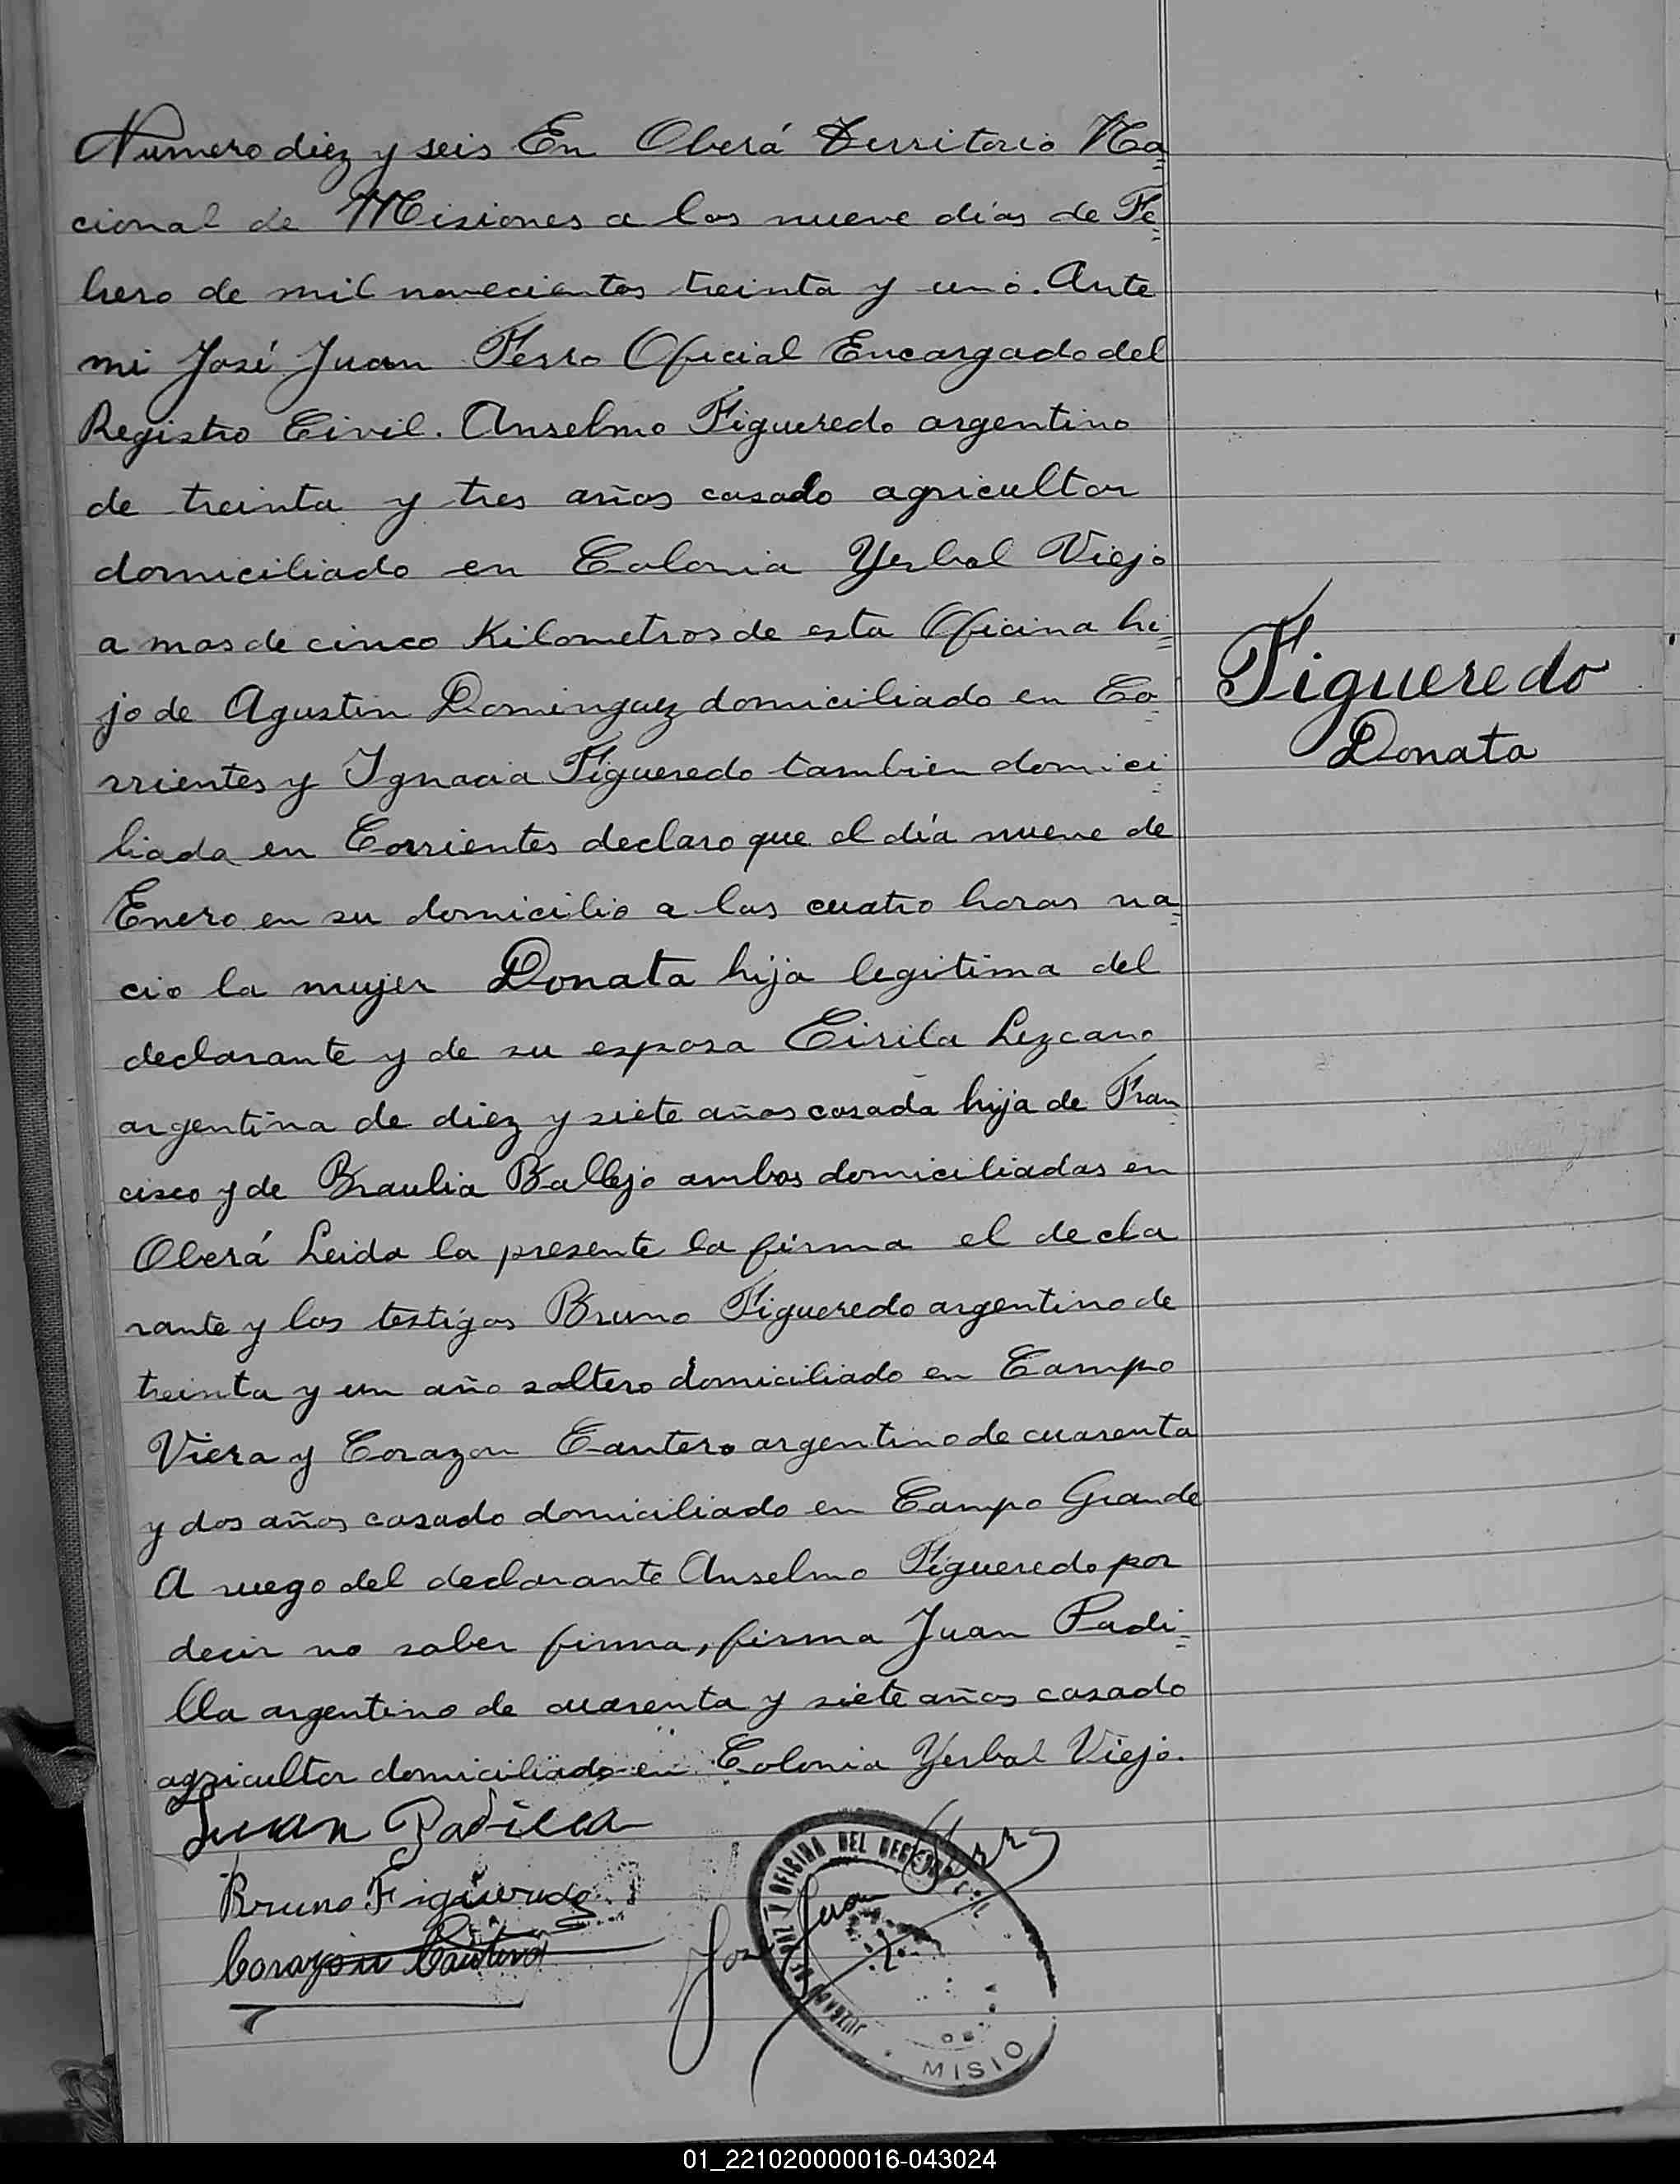 Numero diez y seis En Oberá Territorio Na=
cional de Misiones a los nueve días de Fe=
brero de mil novecientos treinta y uno. Ante
mi José Juan Ferro Oficial Encargado del
Registro Civil. Anselmo Figueredo argentino
de treinta y tres años casado agricultor
domiciliado en Colonia Yerbal Viejo
a mas de cinco Kilometros de esta Oficina hi=
jo de Agustin Dominguez domiciliado en Co=
rrientes y Ignacia Figueredo tambien domici=
liada en Corrientes declaro que el día nueve de
Enero en su domicilio a las cuatro horas na=
cio la mujer Donata hija legitima del
declarante y de su esposa Cirila Lezcano
argentina de diez y siete años casada hija de Fran=
cisco y de Braulia Ballejo ambos domiciliadas en
Oberá Leida la presente la firma el decla
rante y los testigos Bruno Figueredo argentino de
treinta y un año soltero domiciliado en Campo
Viera y Corazon Cantero argentino de cuarenta
y dos años casado domiciliado en Campo Grande
A ruego del declarante Anselmo Figueredo por
decir no saber firma, firma Juan Padi=
lla argentino de cuarenta y siete años casado
agricultor domiciliado en Colonia Yerbal Viejo.
Figueredo
Donata
Juan Padilla
Bruno Figueredo
Corazon Cantero
José Juan Ferro
JUZGADO DE PAZ Y OFICINA DEL REG
MISIO
01_221020000016-043024